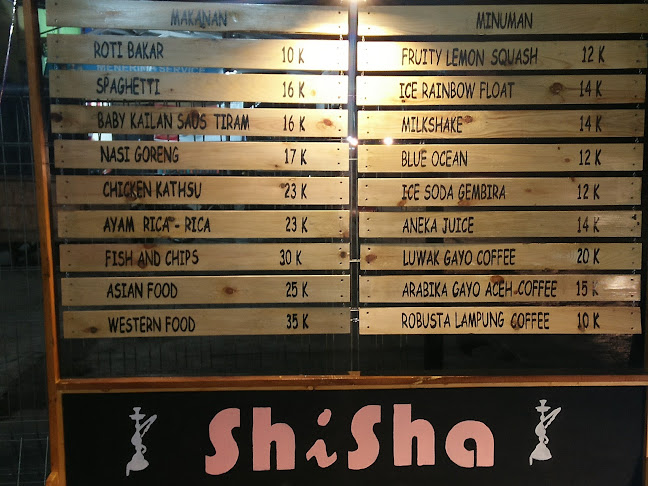 MAKANAN
ROTI BAKAR 10 K
SPAGHETTI 16 K
BABY KAILAN SAUS TIRAM 16 K
NASI GORENG 17 K
CHICKEN KATHSU 23 K
AYAM RICA - RICA 23 K
FISH AND CHIPS 30 K
ASIAN FOOD 25 K
WESTERN FOOD 35 K
MINUMAN
FRUITY LEMON SQUASH 12 K
ICE RAINBOW FLOAT 14 K
MILKSHAKE 14 K
BLUE OCEAN 12 K
ICE SODA GEMBIRA 12 K
ANEKA JUICE 14 K
LUWAK GAYO COFFEE 20 K
ARABIKA GAYO ACEH COFFEE 15 K
ROBUSTA LAMPUNG COFFEE 10 K
ShiSha